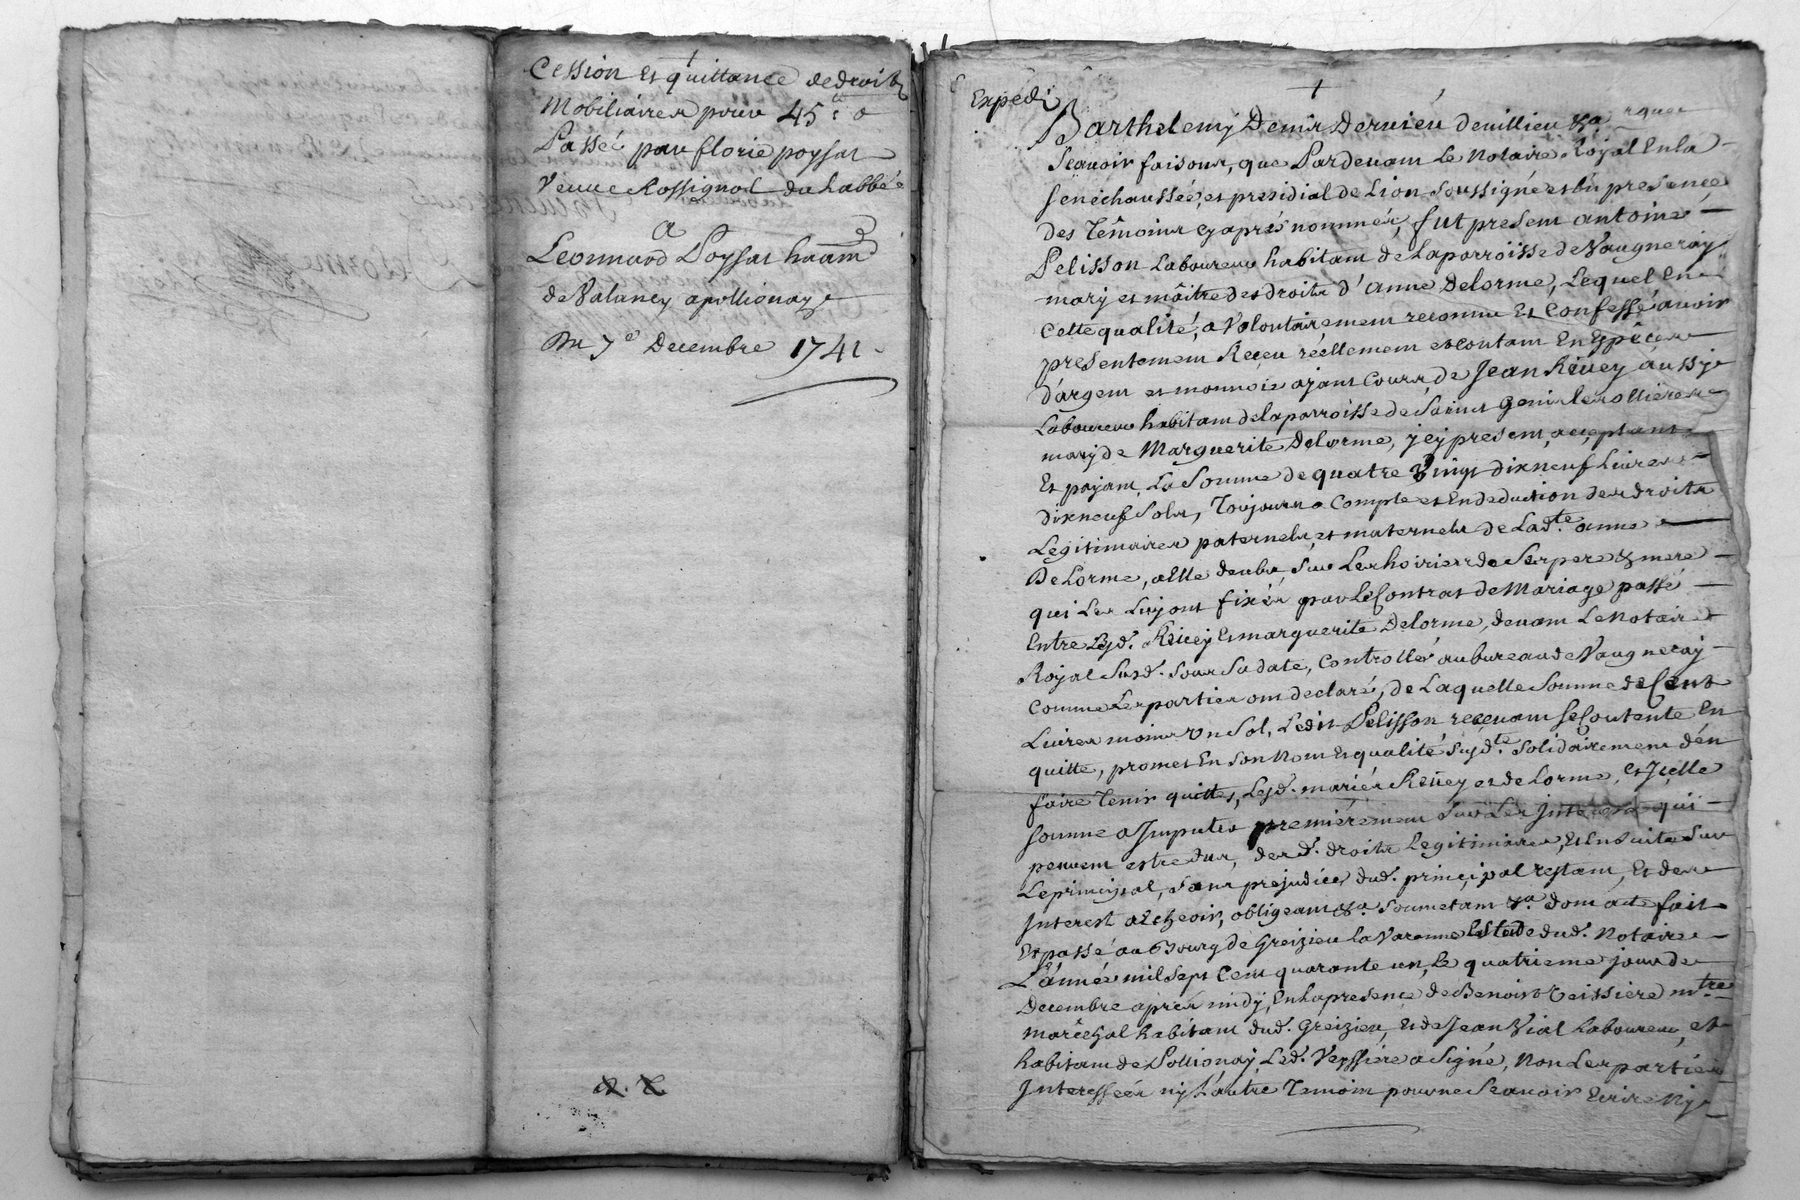 Cession et quittance de droits
mobiliaires pour 45 ₶ 0
Passé par florie poysat
veuve Rossignol du habbée
a
Leonnard Poysat
de Valancy apollionay
Du 7e Decembre 1741
Expedié
Barthelemy Denis Dervieu devillieu &a
Scavoir faisons, que Pardevant le Notaire Royal En la
senéchaussée, et presidial de Lion soussigné et En presence
des Témoins cy aprés nommés, fut present antoine
Pelisson Laboureur habitant de la parroisse de Vaugneray
mary et maître des droits d'anne Delorme, Lequel En
cette qualité, a Volontairement reconnu Et Confessé avoir
presentement Reçeu réellement et contant En Espéces
d'argent et monnoie ajant Cours, de Jean Rivey aussy
Laboureur habitant de la parroisse de Saint Genis les ollieres
mary de Marguerite Delorme, jcy present, acceptant
Et payant, La Somme de quatre Vingt dix neuf Livres
dix neuf Sols, Toujours a Compte et En deduction des droits
Legitimaires paternels, et maternels de Lad.te anne
DeLorme, a Elle deubs, Sur Les hoiries de Ses pere & mere
qui Les Luy ont fixés par Le Contrat de Mariage passé
Entre Lesd. Rivey Et marguerite Delorme, devant Le Notaire
Royal Susd. Sous Sa date, Controllés au bureau de Vaugneray
comme Les parties ont declaré, de Laquelle Somme de Cent
Livres moins Un Sol, Ledit Pelisson recevant se Contente En
quitte, promet En Son Nom Et qualité susd.te solidairement d'en
faire Tenir quittes, Lesd. mariés Rivey et de Lorme, Et Jcelle
somme a Jmputer premièrement Sur Les Jnterests qui
peuvent estre dus, desd. droits Legitimaires, Et Ensuitte Sur
Le principal, Sans prejudice dud. principal restant, Et des
Jnterest a Echeoir, obligeant &a soumetant &a dont acte fait
Et passé au Bourg de Greizieu la Varenne Estude dud. Notaire
L'année mil Sept Cent quarante un, Le quatrieme jour de
Decembre aprés midy, En la presence de Benoist Teissiere m.tre
maréchal habitant dud. Greizieu, Et de Jean Vial Laboureur, et
habitant de Pollionay, Led. Teyssiere a Signé, Non Les parties
Jnteressées ny L'autre Temoin pour ne Scavoir Ecrire Ny